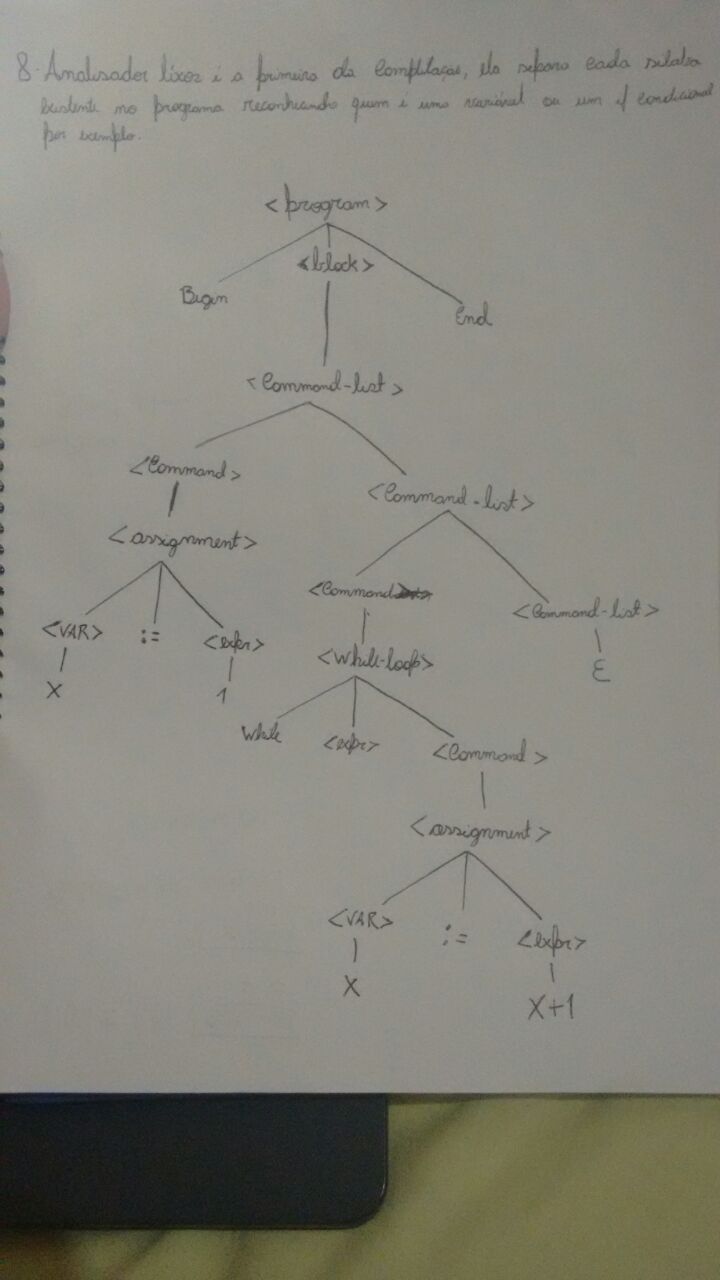 8. Analisador léxico é a primeira da Compilação, ele separa cada sílaba
existente no programa reconhecendo quem é uma variável ou um if condicional
por exemplo.
<program>
<block>
Begin
End
<Command-list>
<Command>
<Command-list>
<assignment>
<Command>
<Command-list>
<VAR> := <expr>
<While-loop>
ε
X
1
While
<expr>
<Command>
<assignment>
<VAR> := <expr>
X
X+1